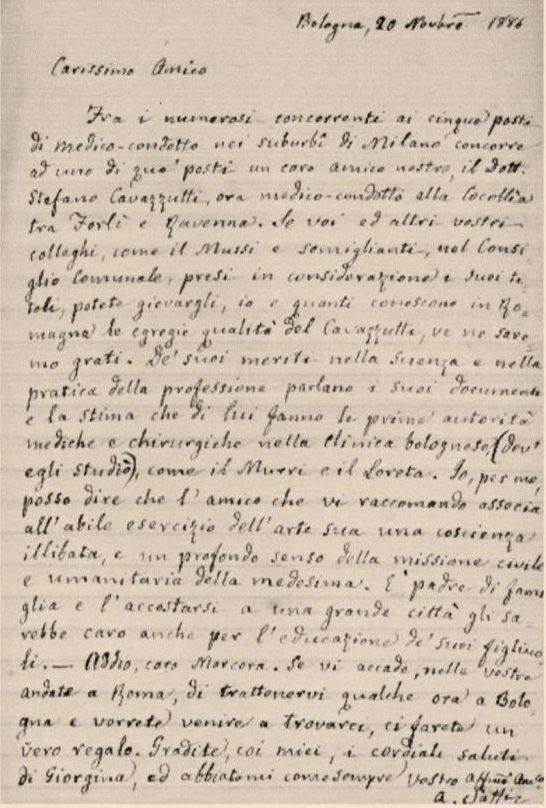 Bologna, 20 Novbre 1886
Carissimo Amico
Fra i numerosi concorrenti ai cinque posti
di medico-condotto nei suburbi di Milano concorre
ad uno di que' posti un caro amico nostro, il Dott.
Stefano Cavazzutti, ora medico-condotto alla Cocollia
tra Forlì e Ravenna. Se voi ed altri vostri
colleghi, come il Mussi e somiglianti, nel Consi
glio Comunale, presi in considerazione i suoi ti-
toli, potete giovargli, io e quanti conoscono in Ro-
magna le egregie qualità del Cavazzutti, ve ne sare-
mo grati. De' suoi meriti nella scienza e nella
pratica della professione parlano i suoi documenti
e la stima che di lui fanno le prime autorità
mediche e chirurgiche nella clinica bolognese (dov'
egli studiò), come il Murri e il Loreta. Io, per me,
posso dire che l'amico che vi raccomando associa
all'abile esercizio dell'arte sua una coscienza
illibata, e un profondo senso della missione civile
e umanitaria della medesima. E' padre di fami
glia e l'accostarsi a una grande città gli sa-
rebbe caro anche per l'educazione de' suoi figliuo-
li. — Addio, caro Marcora. Se vi accade, nelle vostre
andate a Roma, di trattenervi qualche ora a Bolo-
gna e vorrete venire a trovarci, ci farete un
vero regalo. Gradite, coi miei, i cordiali saluti
di Giorgina, ed abbiatemi come sempre vostro affmo Amico
A. Saffi